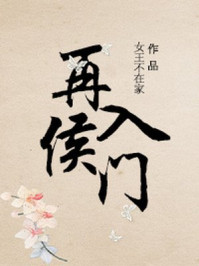 再入侯门
女王不在家
作品